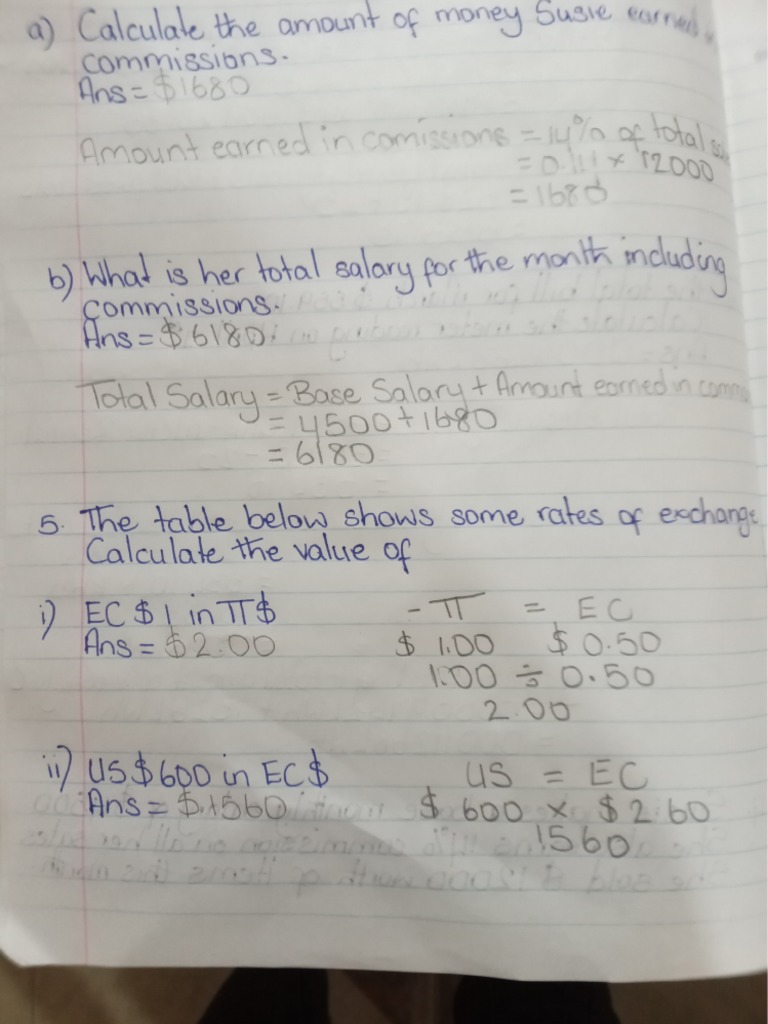 a) Calculate the amount of money Susie earned
commissions.
Ans = $1680
Amount earned in comissions = 14% of total
= 0.14 × 12000
= 1680
b) What is her total salary for the month including
commissions.
Ans = $6180
Total Salary = Base Salary + Amount earned in
= 4500 + 1680
= 6180
5. The table below shows some rates of exchange
Calculate the value of
i) EC $ 1 in TT$ - TT = EC
Ans = $2.00 $ 1.00 $ 0.50
1.00 ÷ 0.50
2.00
ii) US $600 in EC $ US = EC
Ans = $1560 $ 600 × $2.60
1560